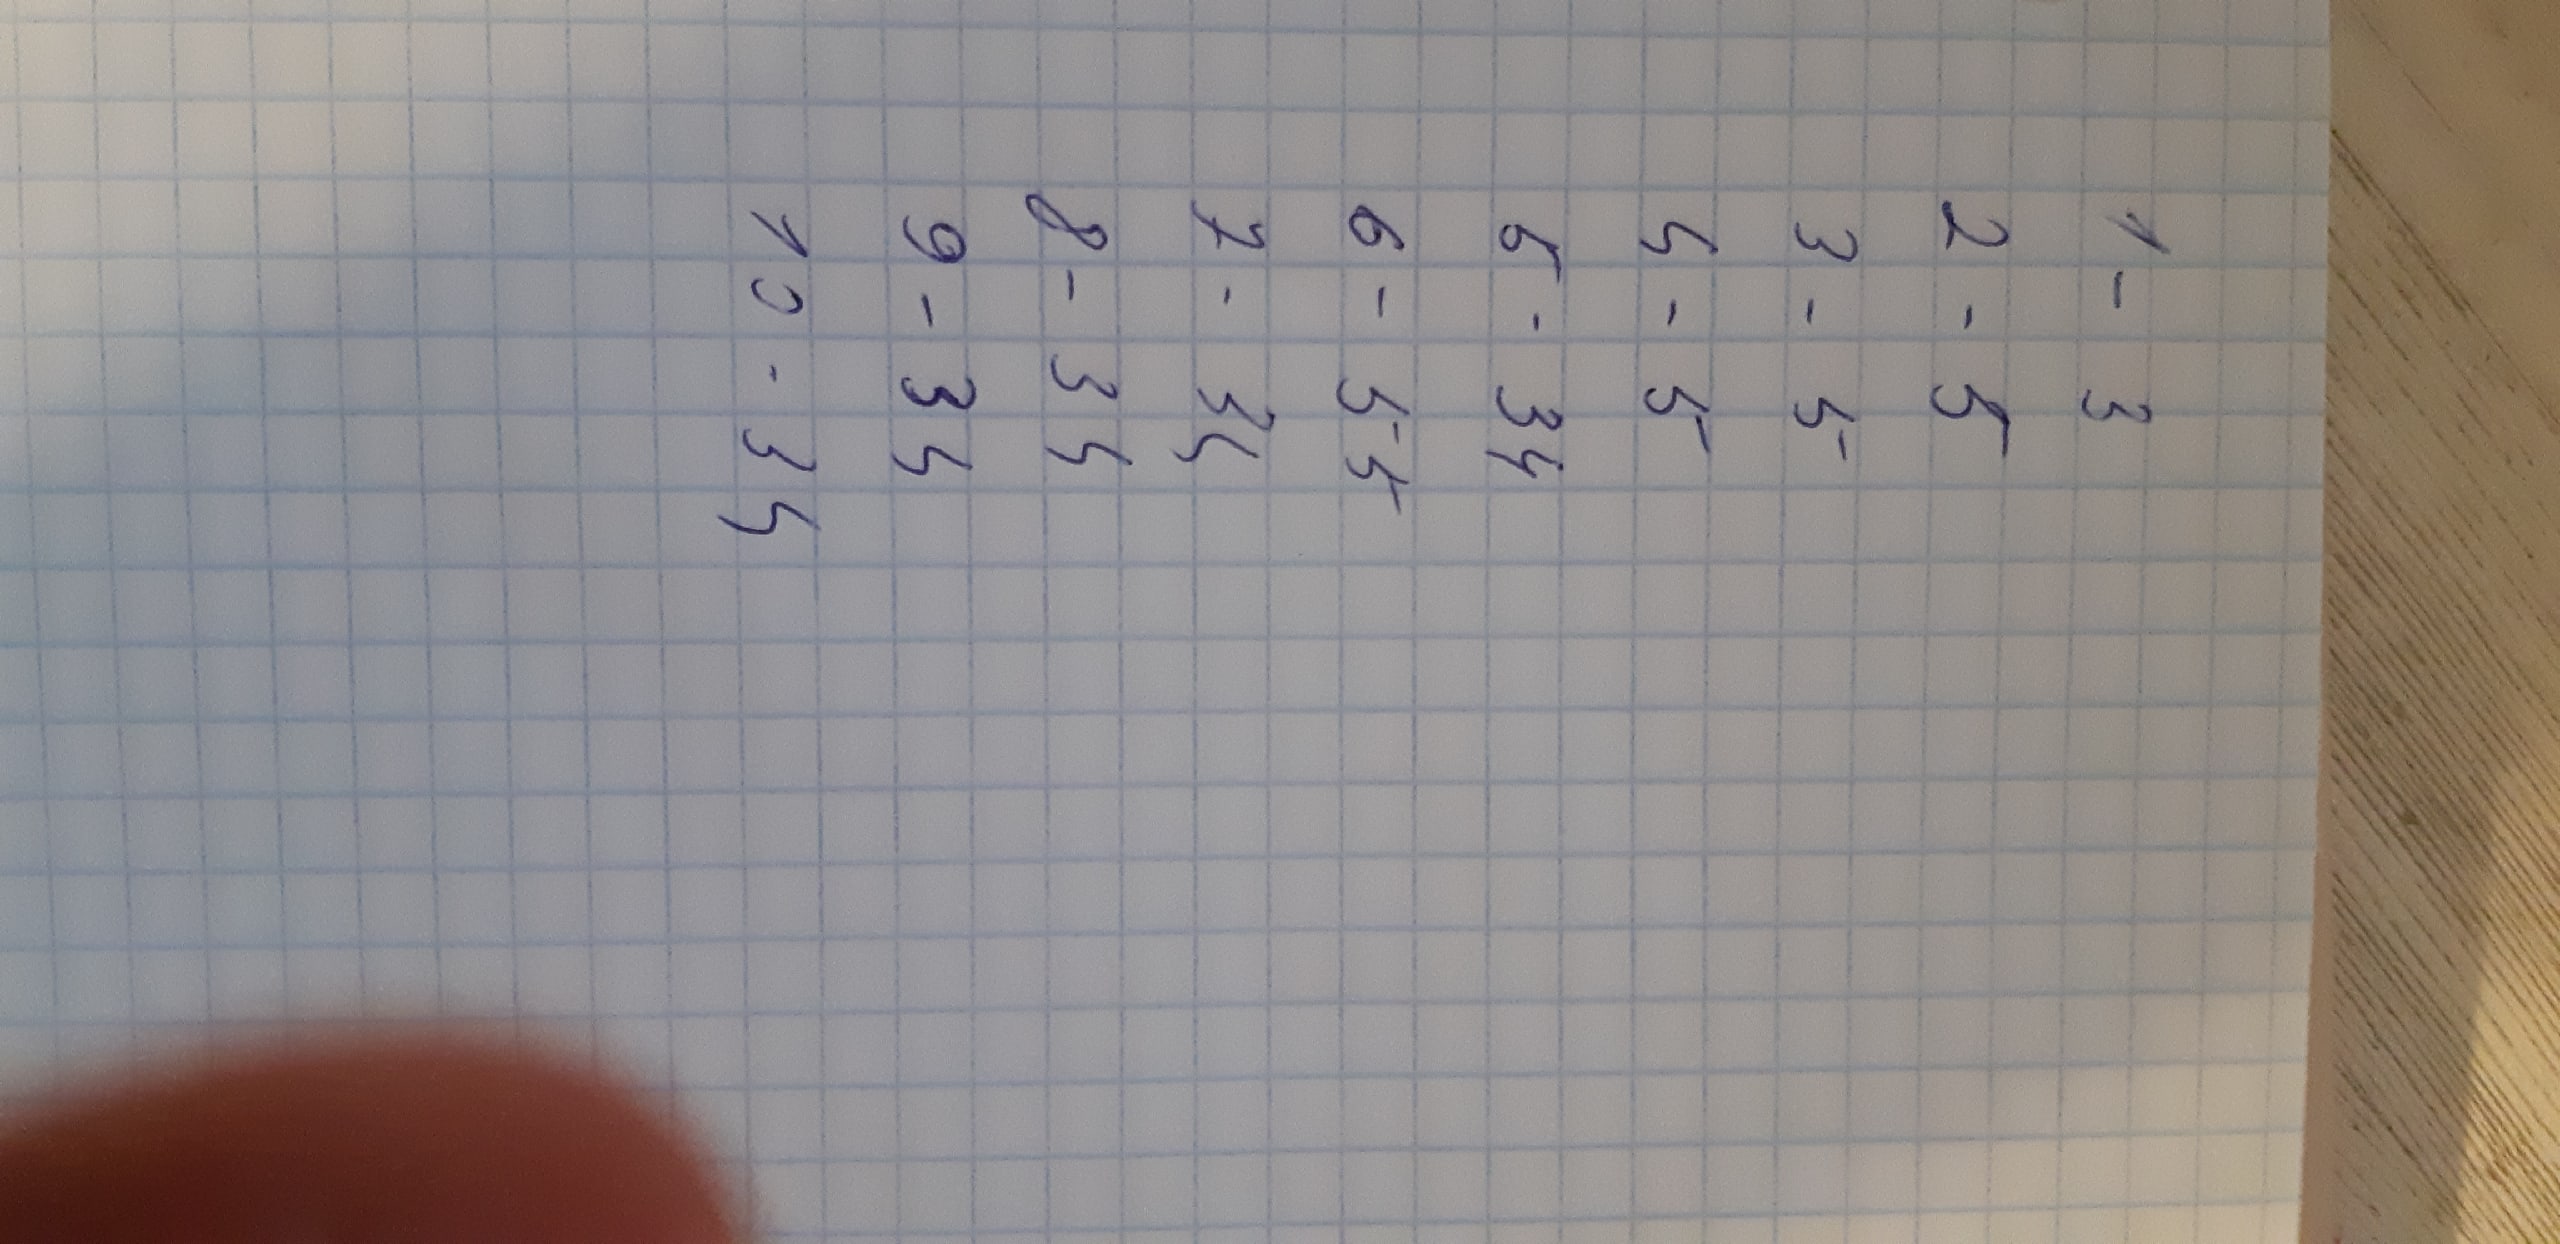 1 - 3
2 - 5
3 - 5
4 - 5
5 - 34
6 - 55
7 - 34
8 - 34
9 - 34
10 - 34